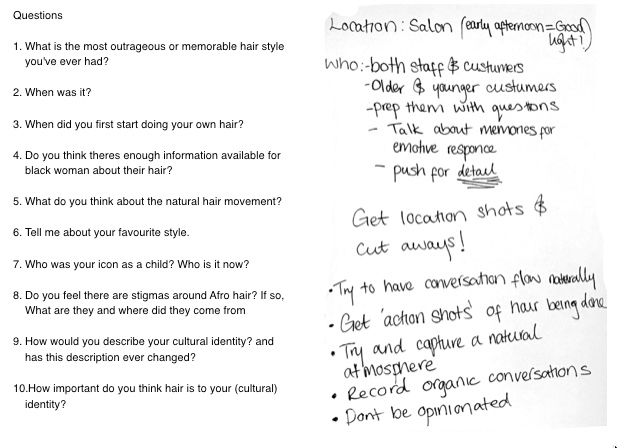 Questions
1. What is the most outrageous or memorable hair style
you've ever had?
2. When was it?
3. When did you first start doing your own hair?
4. Do you think theres enough information available for
black woman about their hair?
5. What do you think about the natural hair movement?
6. Tell me about your favourite style.
7. Who was your icon as a child? Who is it now?
8. Do you feel there are stigmas around Afro hair? If so,
What are they and where did they come from
9. How would you describe your cultural identity? and
has this description ever changed?
10.How important do you think hair is to your (cultural)
identity?
Location: Salon (early afternoon = Good
light!)
Who:-both staff & custumers
-Older & younger custumers
-prep them with questions
- Talk about memories for
emotive responce
- push for detail
Get location shots &
cut aways!
• Try to have conversation flow naturally
• Get 'action shots' of hair being done
• Try and capture a natural
atmosphere
• Record organic conversations
• Dont be opinionated